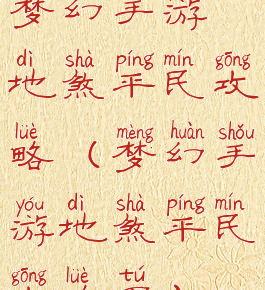 梦幻手游
dì shà píng mín gōng
地煞平民攻
lüè mèng huàn shǒu
略（梦幻手
yóu dì shà píng mín
游地煞平民
gōng lüè tú